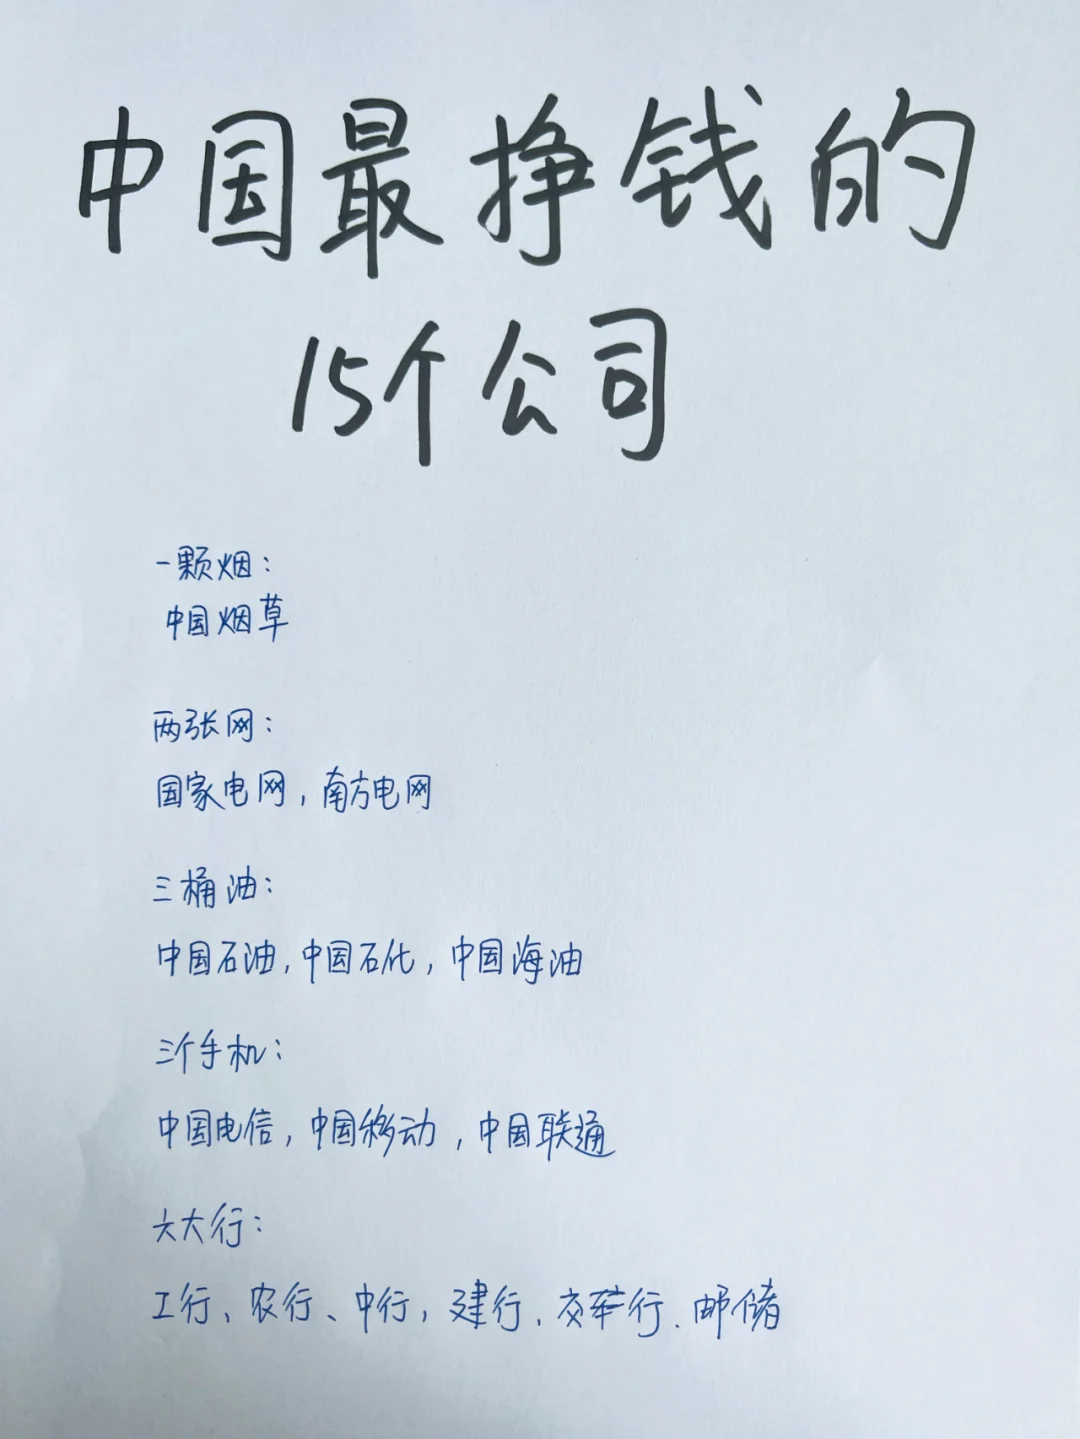 中国最挣钱的
15个公司
一颗烟：
中国烟草
两张网：
国家电网，南方电网
三桶油：
中国石油，中国石化，中国海油
三个手机：
中国电信，中国移动，中国联通
六大行：
工行、农行、中行，建行、交行、邮储